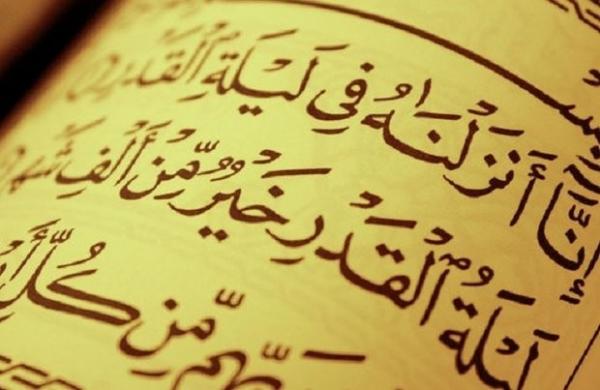 إِنَّآ أَنزَلْنَٰهُ فِى لَيْلَةِ ٱلْقَدْرِ
لَيْلَةُ ٱلْقَدْرِ خَيْرٌ مِّنْ أَلْفِ شَهْرٍ
رَبِّهِم مِّن كُلِّ